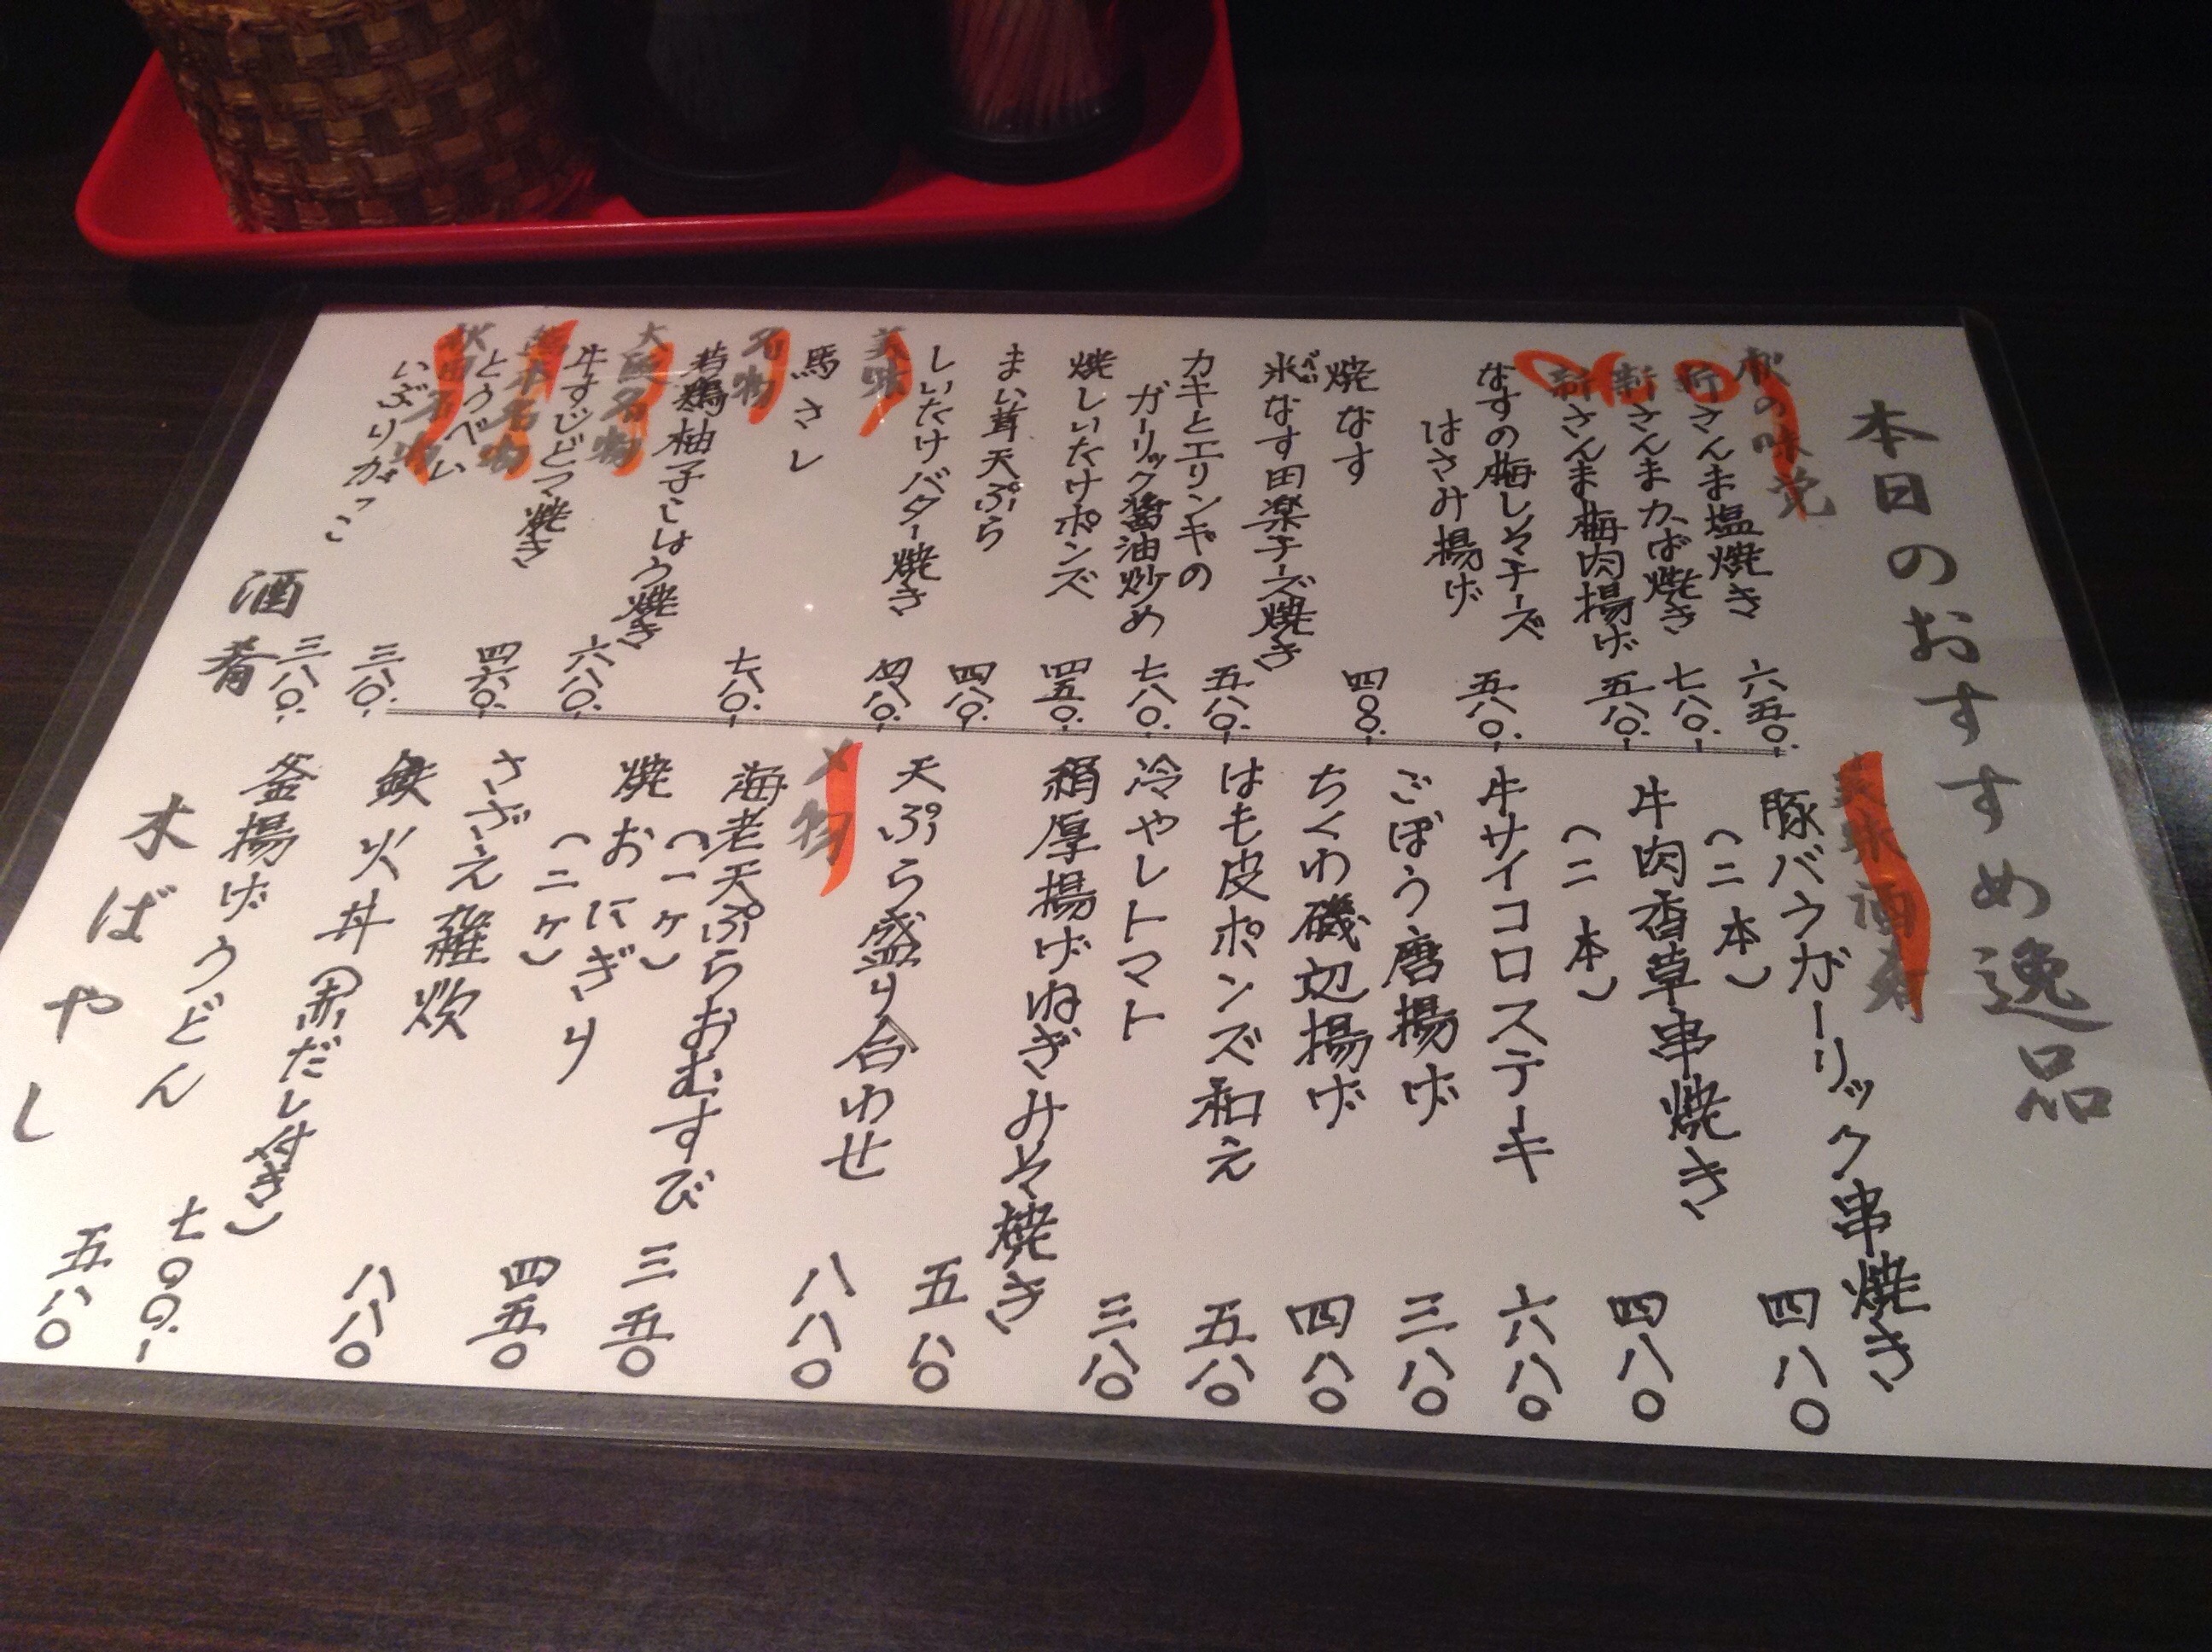 本日のおすすめ逸品
秋の味覚
新さんま塩焼き 六五〇.-
新さんまかば焼き 七八〇.-
新さんま梅肉揚げ 五八〇.-
なすの梅しそチーズ
はさみ揚げ 五八〇.-
焼なす 四〇〇.-
米なす田楽チーズ焼き 五八〇.-
カキとエリンギの
ガーリック醤油炒め 七八〇.-
焼しいたけポンズ 四五〇.-
まい茸天ぷら 四八〇.-
しいたけバター焼き 四八〇.-
美味
馬さし 七八〇.-
名物
若鶏柚子こしょう焼き 六八〇.-
大阪名物
牛すじどて焼き 四六〇.-
熊本名物
とうべい 三八〇.-
秋田名物
いぶりがっこ 三八〇.-
美味酒肴
豚バラガーリック串焼き
（二本） 四八〇
牛肉香草串焼き
（二本） 四八〇
牛サイコロステーキ 六八〇
ごぼう唐揚げ 三八〇
ちくわ磯辺揚げ 四八〇
はも皮ポンズ和え 五八〇
冷やしトマト 三八〇
絹厚揚げねぎみそ焼き 五八〇
天ぷら盛り合わせ 八八〇
〆物
海老天ぷらおむすび
（一ヶ） 三五〇
焼おにぎり
（二ヶ） 四五〇
さざえ雑炊 八八〇
鉄火丼（赤だし付き） 七〇〇.-
釜揚げうどん 五八〇
酒肴 木ばやし